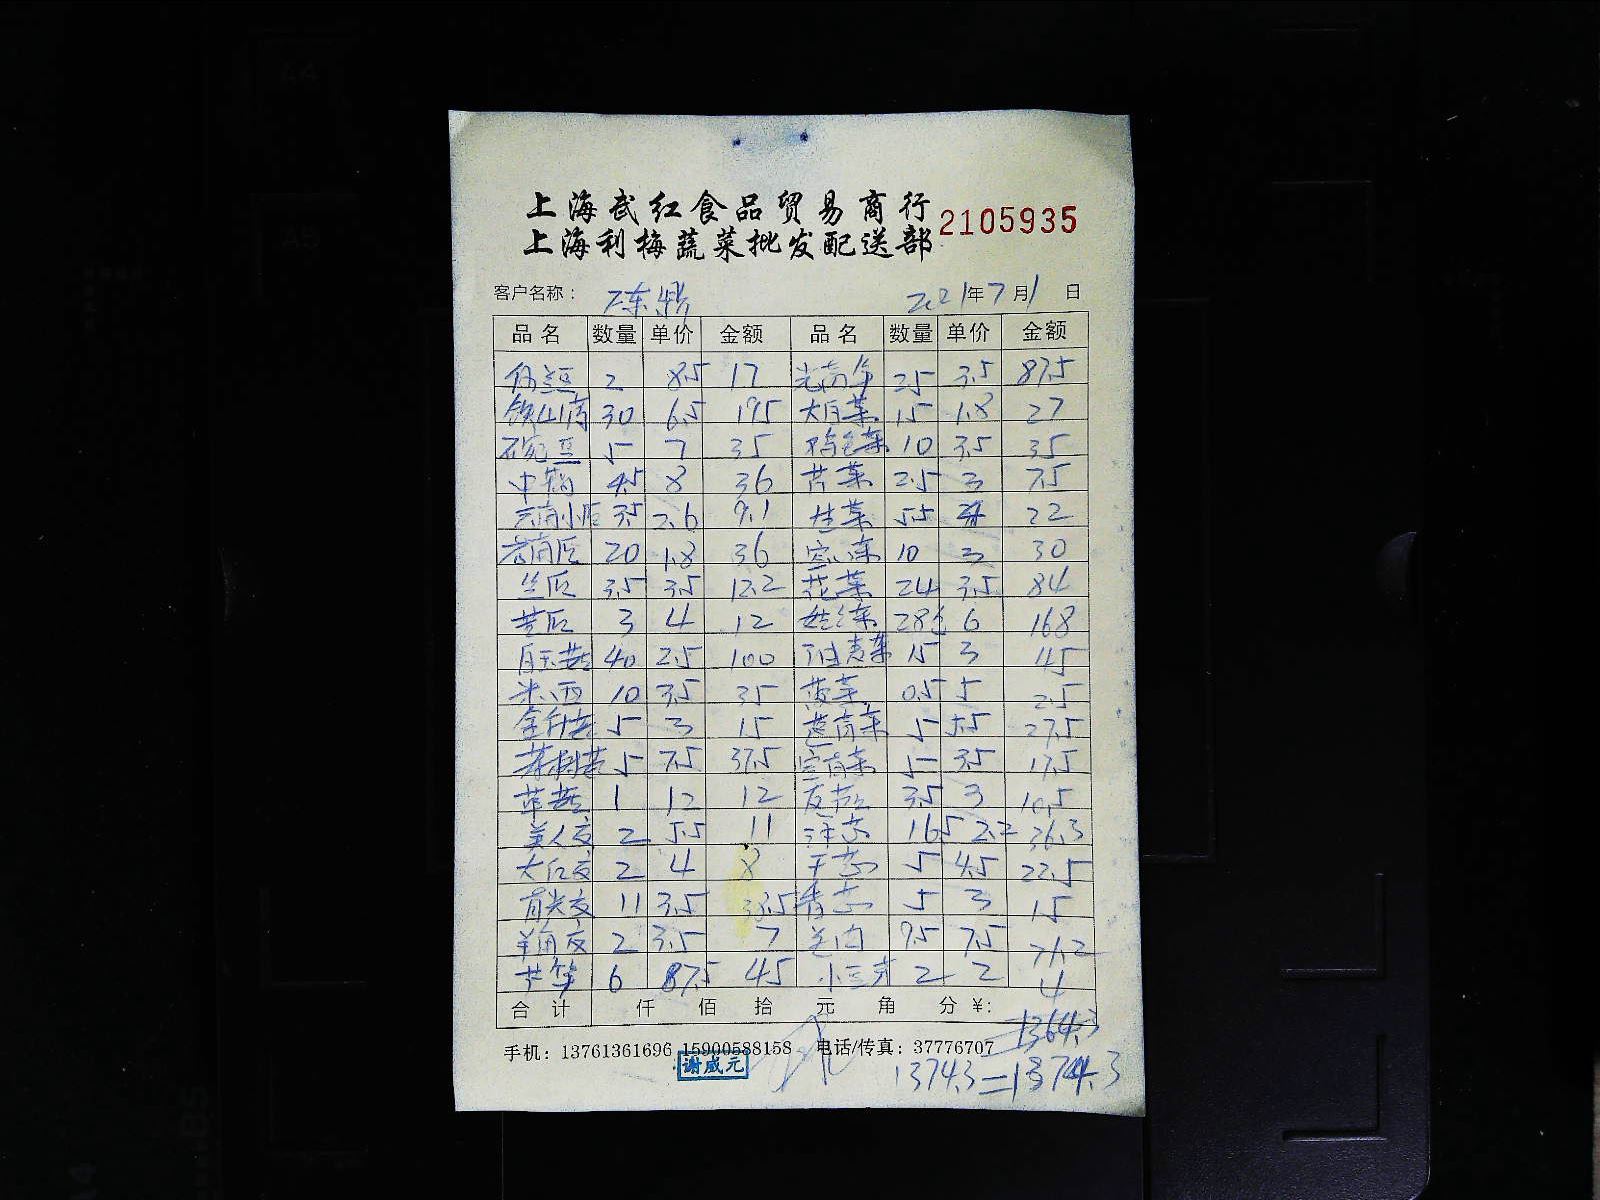 上海武红食品贸易商行
上海利梅蔬菜批发配送部
2105935
客户名称： 陈 2021年7月1日
品名 数量 单价 金额 品名 数量 单价 金额
2 8.5 17 25 3.5 87.5
30 6.5 195 大白菜 15 1.8 27
豌豆 5 7 35 鸡毛菜 10 3.5 35
4.5 8 36 2.5 3 7.5
3.5 2.6 9.1 生菜 5.5 4 22
老南瓜 20 1.8 36 10 3 30
丝瓜 3.5 3.5 12.2 花菜 24 3.5 84
3 4 12 28 6 168
40 2.5 100 油麦菜 15 3 45
10 3.5 35 菠菜 0.5 5 2.5
5 3 15 5 5.5 27.5
茶树菇 5 7.5 37.5 5 3.5 17.5
草菇 1 12 12 3.5 3 10.5
美人交 2 5.5 11 洋芯 16.5 2.2 36.3
大红交 2 4 8 5 4.5 22.5
青尖交 11 3.5 38.5 香芯 5 3 15
羊角交 2 3.5 7 9.5 7.5 71.2
6 7.5 45 小豆芽 2 2 4
合计 仟 佰 拾 元 角 分 ￥:
1364.3
手机：13761361696 15900588158 电话/传真：37776707
谢威元
1374.3=1374.3